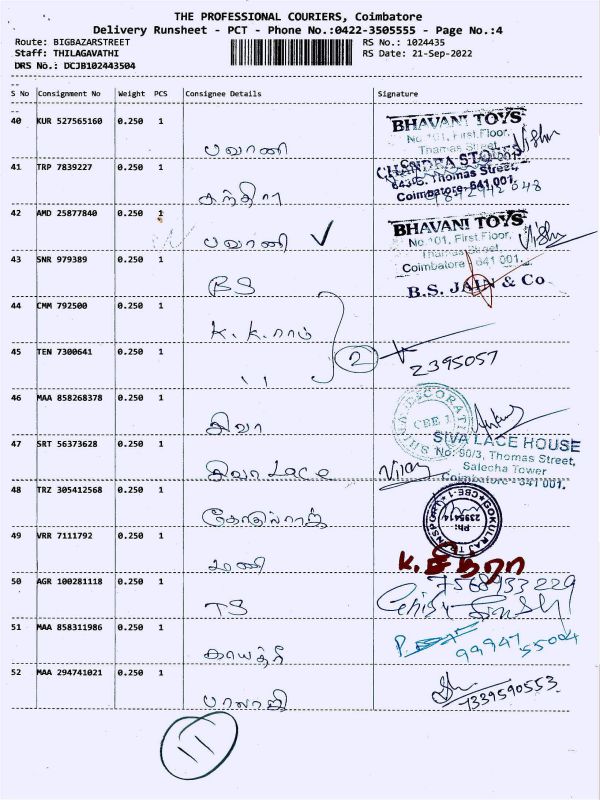 THE PROFESSIONAL COURIERS, Coimbatore
Delivery Runsheet - PCT - Phone No.:0422-3505555 - Page No.:4
Route: BIGBAZARSTREET RS No.: 1024435
Staff: THILAGAVATHI RS Date: 21-Sep-2022
DRS No.: DCJB102443504
S No Consignment No Weight PCS Consignee Details Signature
40 KUR 527565160 0.250 1
பவானி
BHAVANI TOYS
No 101, First Floor,
Thamas Street,
41 TRP 7839227 0.250 1
CHANDRA STORES
643-B, Thomas Street,
Coimbatore-641 001.
சந்திரா
42 AMD 25877840 0.250 1
பவானி
BHAVANI TOYS
No 101, First Floor,
Thamas Street,
Coimbatore - 641 001.
43 SNR 979389 0.250 1
BS
B.S. JAIN & Co
44 CMM 792500 0.250 1
K.K.ராம்
45 TEN 7300641 0.250 1
,, 2 2395057
46 MAA 858268378 0.250 1
சிவா
CBE-1
47 SRT 56373628 0.250 1
சிவா Lace Viray
SIVA LACE HOUSE
No: 90/3, Thomas Street,
Salecha Tower
Coimbatore - 341 001.
48 TRZ 305412568 0.250 1
கோகுல்ராஜ்
GOKULRAJ TRANSPORT CBE-1
Ph: 2395414
49 VRR 7111792 0.250 1
மணி
50 AGR 100281118 0.250 1
TS
7568933229
51 MAA 858311986 0.250 1
காயத்ரி
99947 55004
52 MAA 294741021 0.250 1
பாலாஜி
7339590553
11